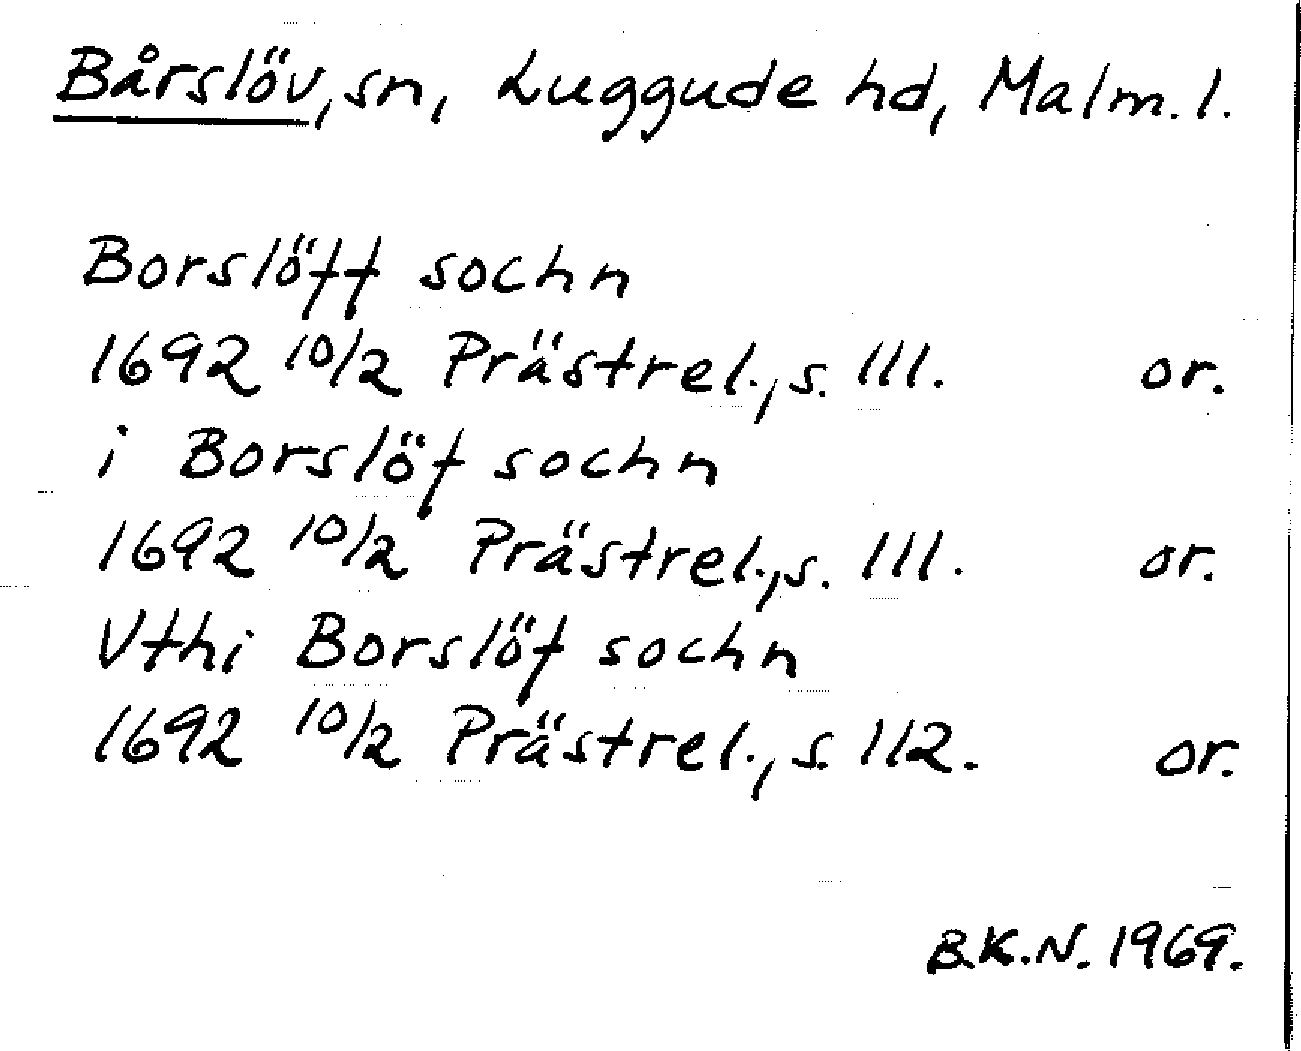 Bårslöv, sn, Luggude hd, Malm. l.
Borslöff sochn
1692 10/2 Prästrel., s. 111. or.
i Borslöf sochn
1692 10/2 Prästrel., s. 111. or.
Vthi Borslöf sochn
1692 10/2 Prästrel., s. 112. or.
B.K.N. 1969.